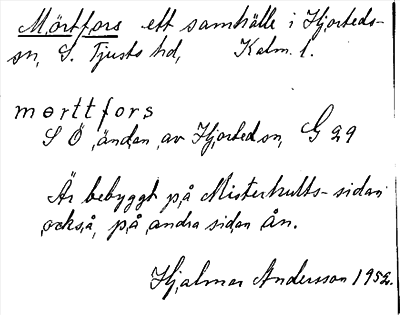 Mörtfors ett samhälle i Hjorteds-
sn, S. Tjusts hd, Kalm. l.
mørttfors
S Ö ändan av Hjorted sn, G 29
Är bebyggt på Misterhults-sidan
också, på andra sidan ån.
Hjalmar Andersson 1952.